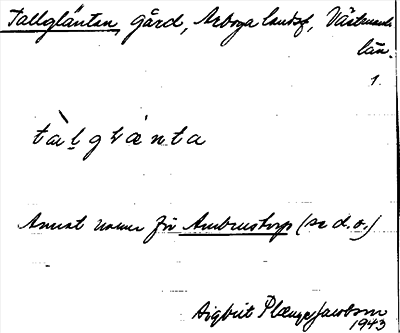 Tallgläntan, gård, Arboga landsf, Västmanl.
län.
1.
Annat namn för Ambrustorp (se d. o.)
Sigbrit Plænge Jacobson
1943